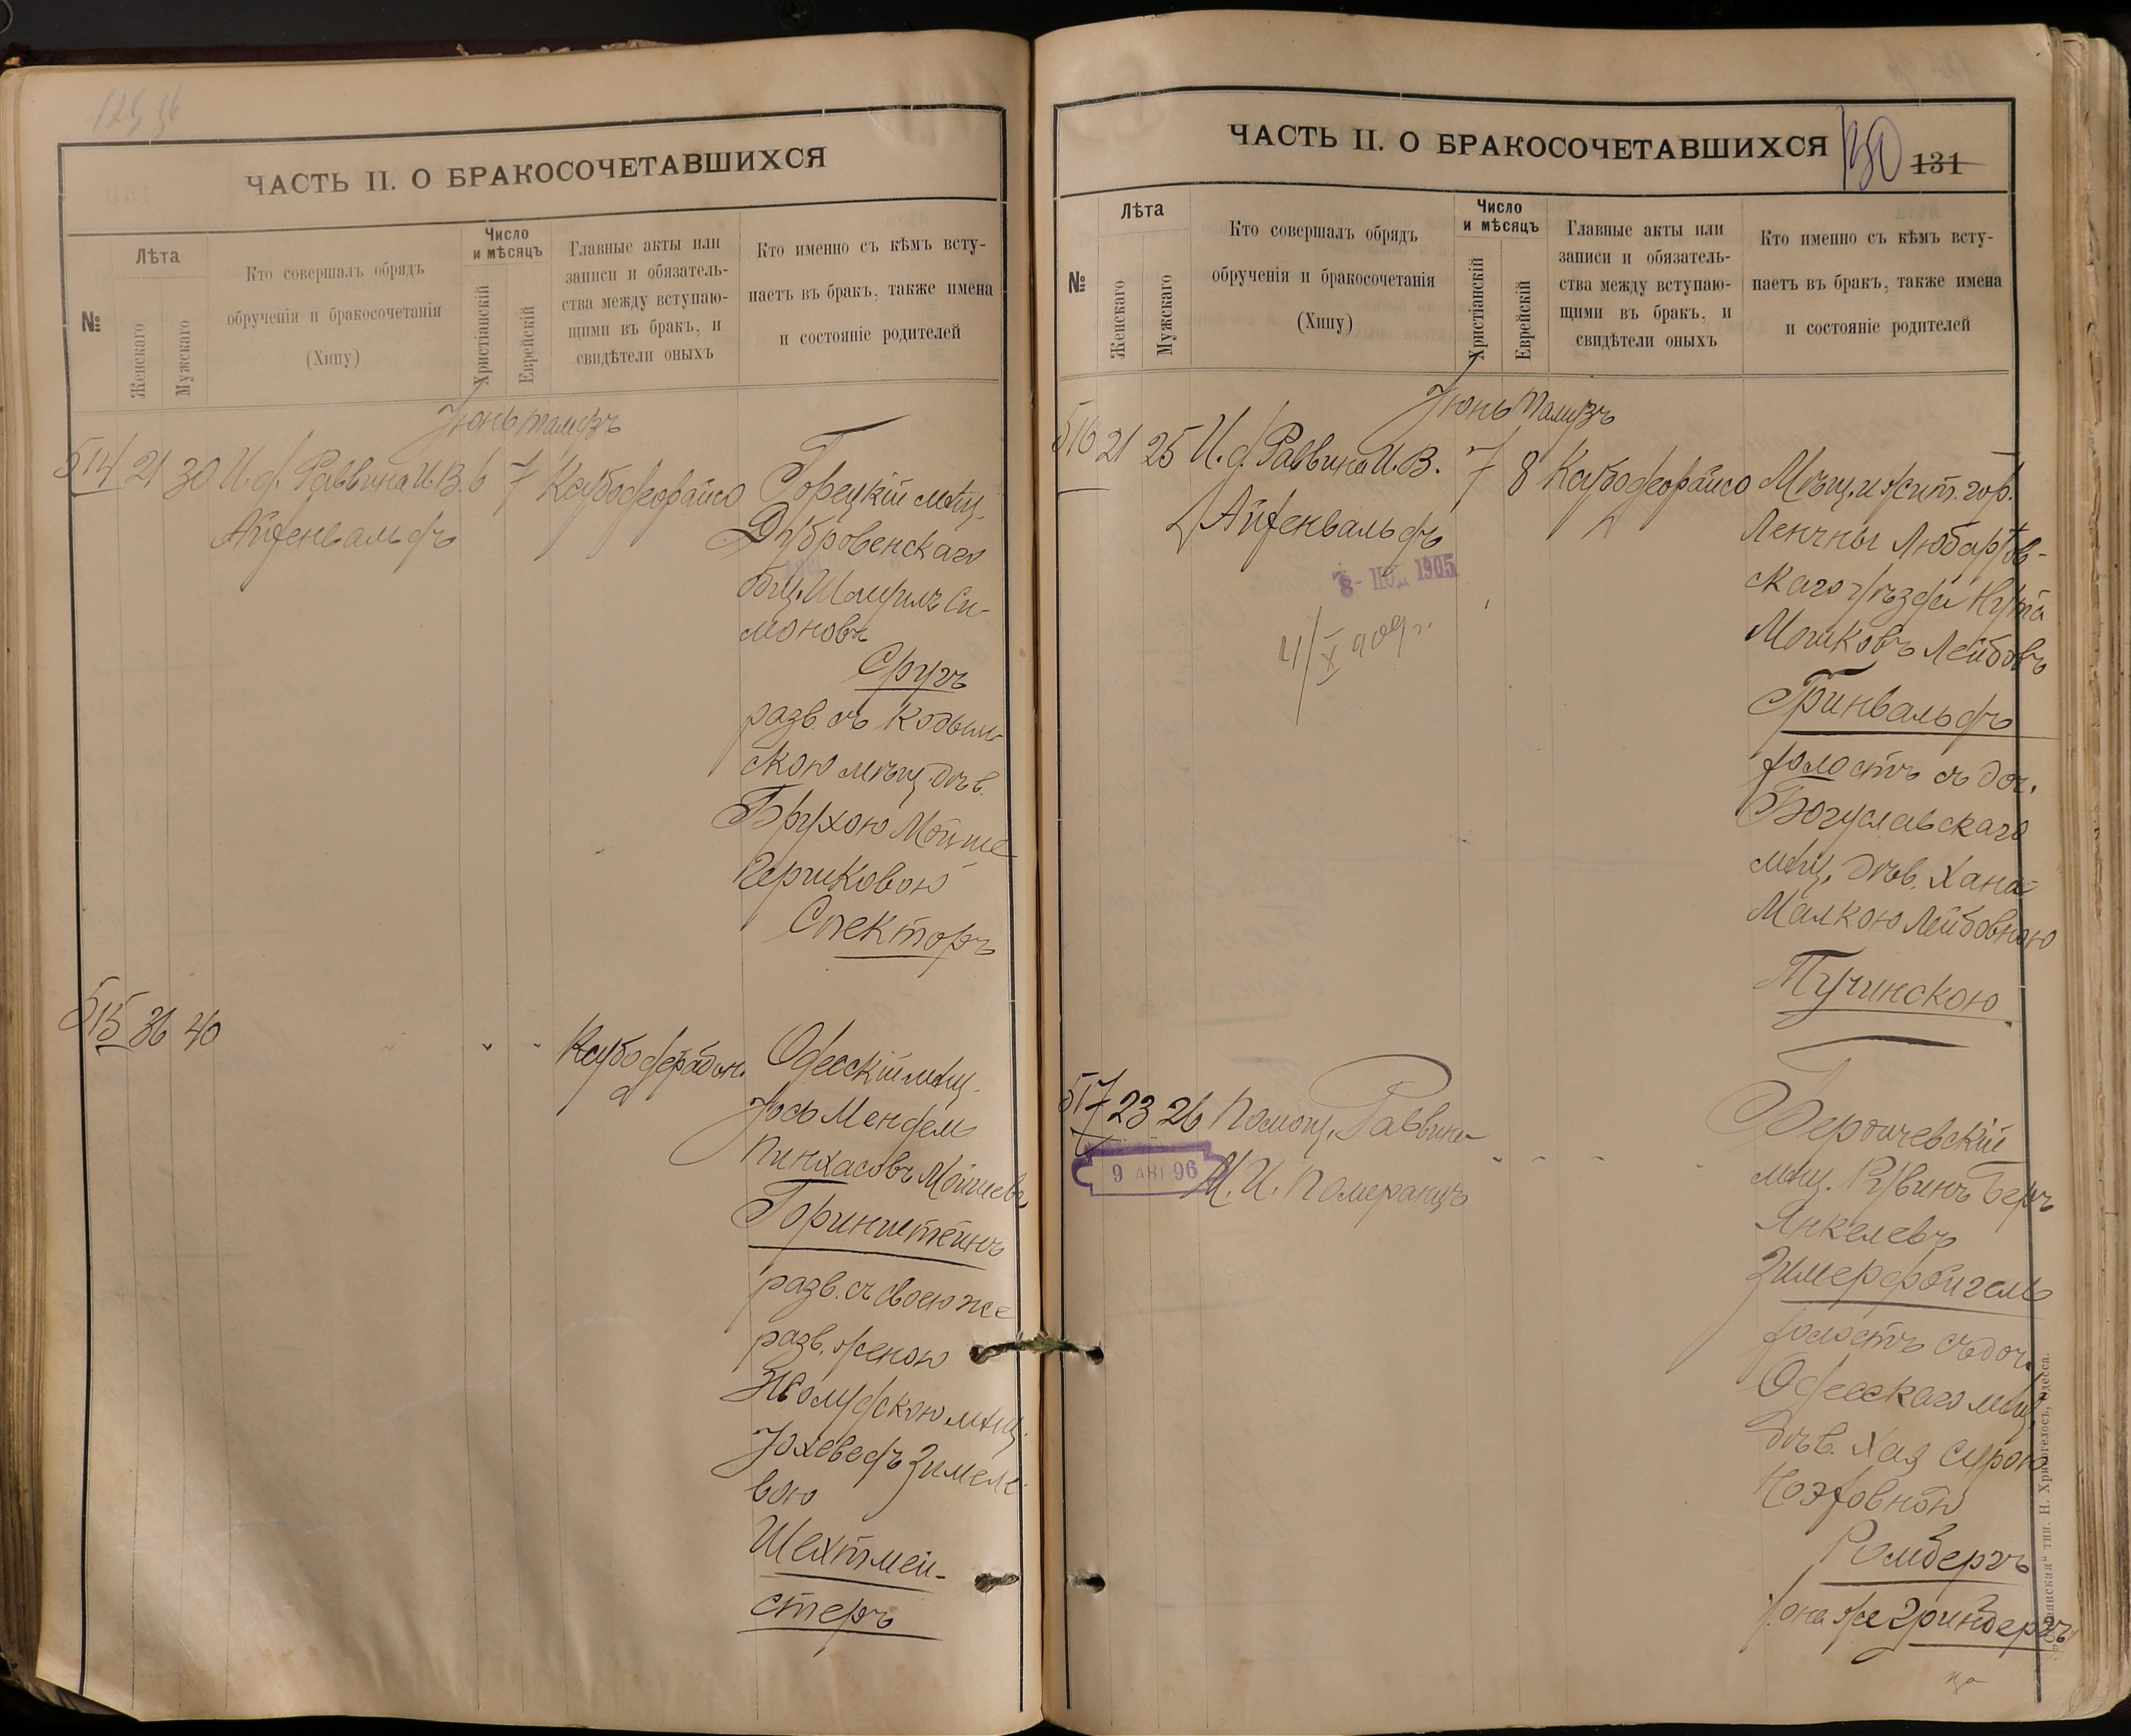 ЧАСТЬ II. О БРАКОСОЧЕТАВШИХСЯ
№
Лѣта
Женскаго
Мужскаго
Кто совершалъ обрядъ
обрученія и бракосочетанія
(Хипу)
Число
и мѣсяцъ
Христіанскій
Еврейскій
Главные акты или
записи и обязатель-
ства между вступаю-
щими въ бракъ, и
свидѣтели оныхъ
Кто именно съ кѣмъ всту-
паетъ въ бракъ, также имена
и состояніе родителей
Іюнь тамузъ
514 21 30 И. д. Раввина И. В. 6 7
Айзенвальдъ
Горецкій мѣщ.
Дубровенскаго
общ. Шмуилъ Си-
моновъ
разв. съ Кодым-
скою мѣщ. дѣв.
Брухою Мойше
Гершковою
Спекторъ
515 36 40
Одесскій мѣщ.
Іось Мендель
Пинхасовъ Мойшевъ
Горинштейнъ
разв. съ своею же
разв. женою
мѣщ.
Іохеведъ Зимеле-
вою
Шехтмей-
стеръ
ЧАСТЬ II. О БРАКОСОЧЕТАВШИХСЯ
130 131
№
Лѣта
Женскаго
Мужскаго
Кто совершалъ обрядъ
обрученія и бракосочетанія
(Хипу)
Число
и мѣсяцъ
Христіанскій
Еврейскій
Главные акты или
записи и обязатель-
ства между вступаю-
щими въ бракъ, и
свидѣтели оныхъ
Кто именно съ кѣмъ всту-
паетъ въ бракъ, также имена
и состояніе родителей
Іюнь тамузъ
516 21 25 И. д. Раввина И. В. 7 8
Айзенвальдъ
1905
4/X 909 г.
Мѣщ. и жит. гор.
Ленчны Любартов-
скаго уѣзда Нута
Мошковъ Лейбовъ
Гринвальдъ
холостъ съ доч.
Богуславскаго
мѣщ. дѣв. Хана
Малкою Лейбовною
Тучинскою
517 23 26 Помощ. Раввина
М. И. Померанцъ
9 АВГ 96
Бердичевскій
мѣщ. Рувинъ Беръ
Янкелевъ
Зимерфойгель
холостъ съ доч.
Одесскаго мѣщ.
дѣв. Хая Сурою
Ромбергъ
она же Гринбергъ
тип. Н. Хрисогелосъ, Одесса.